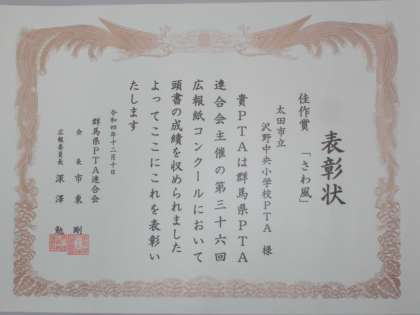 表彰状
佳作賞 「さわ風」
太田市立
沢野中央小学校PTA 様
貴PTAは群馬県PTA
連合会主催の第三十六回
広報紙コンクールにおいて
頭書の成績を収められました
よってここにこれを表彰い
たします
令和四年十二月十日
群馬県PTA連合会
会長 市東 剛
広報委員長 深澤 勉